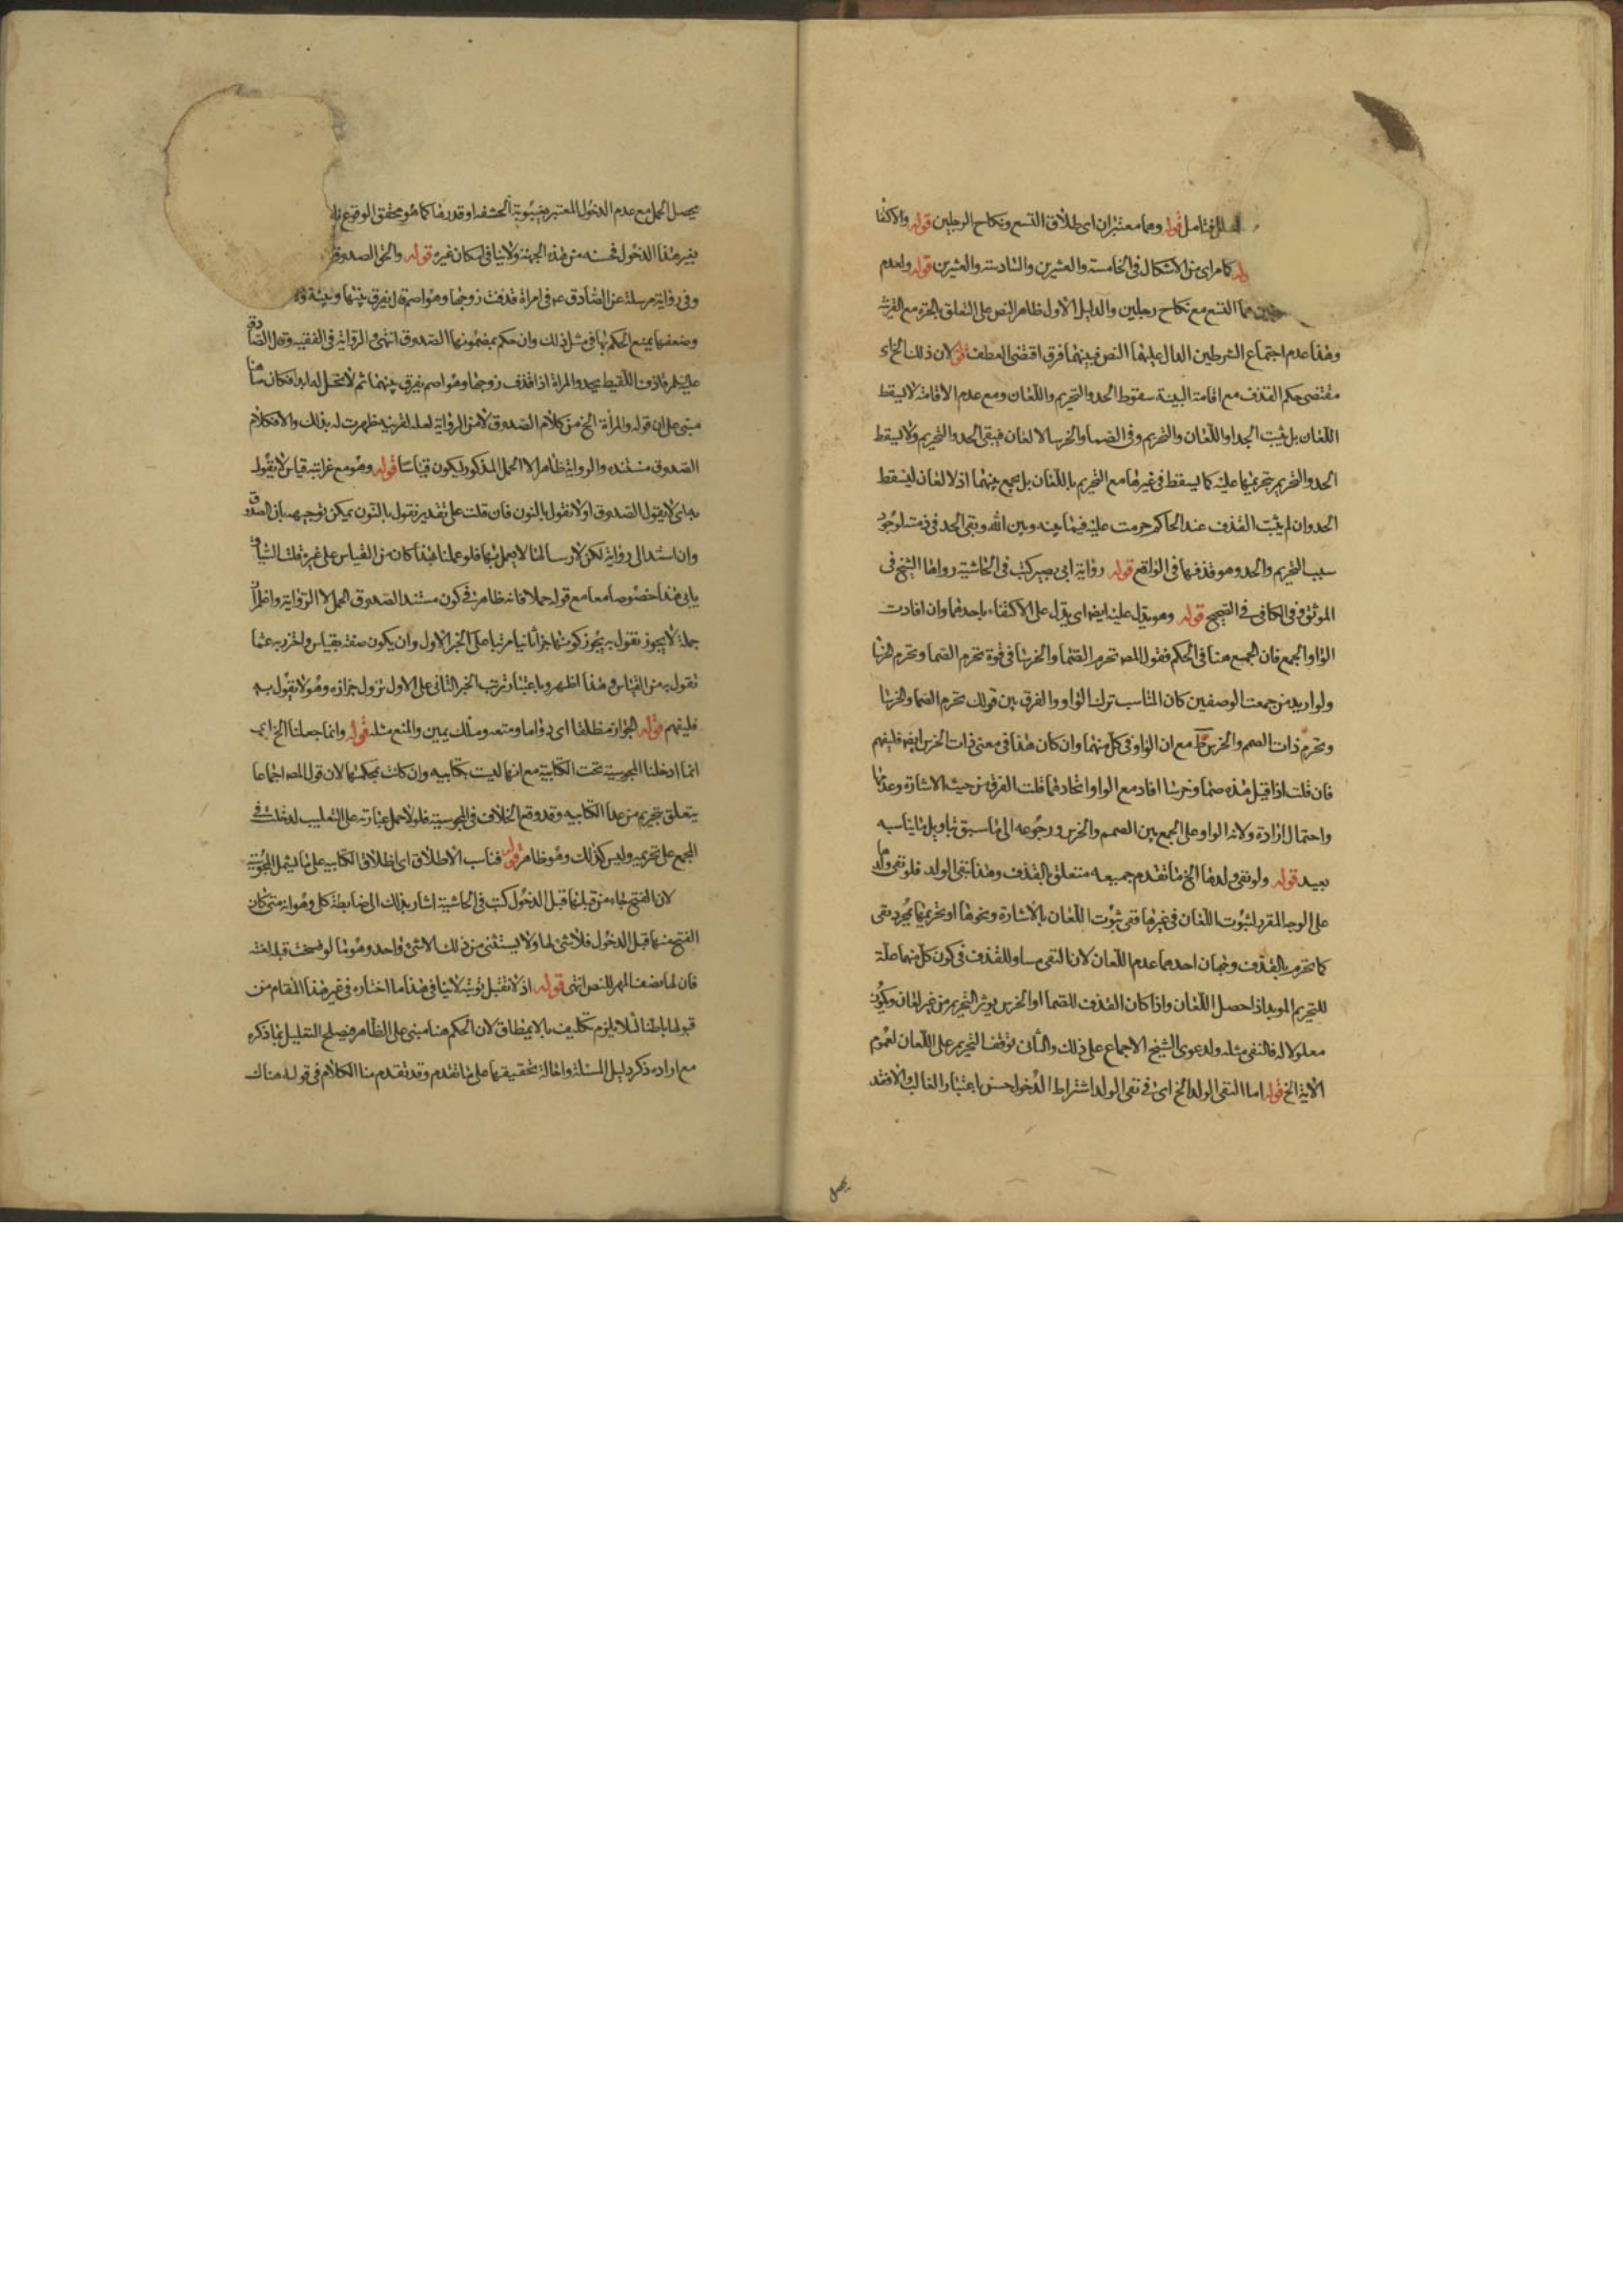 فتامل قوله وهما معتبران اى طلاق التسع ونكاح الرجلين قوله والاكتفا
كما مراى من الاشكال فى الخامسة والعشرين والسادسة والعشرين قوله ولعدم
هما التسع مع نكاح رجلين والدليل الاول ظاهر النص على التعلق بالحرة مع القرينة
وهذا عدم اجتماع الشرطين الدال عليهما النص فبينهما فرق اقتضى العطف قوله لان ذلك الخ اء
مقتضى حكم القذف مع اقامة البينة سقوط الحد والتحريم واللعان ومع عدم الاقامة لا يسقط
اللعان بل يثبت الحد او اللعان والتحريم وفى الصماء والخرسا لا لعان فيبقى الحد والتحريم ولا يسقط
الحد والتحريم بتحريمها عليه كما يسقط فى غيرها مع التحريم باللعان بل يجمع بينهما اذ لا لعان ليسقط
الحد وان لم يثبت القذف عند الحاكم حرمت عليه فيما بينه وبين الله وبقى الحد فى ذمته لوجود
سبب التحريم والحد وهو قذفها فى الواقع قوله رواية ابى بصير كتب فى الحاشية رواها الشيخ فى
الموثق وفى الكافى فى الصحيح قوله وهو يدل عليه ايضا اى يدل على الاكتفاء باحدهما وان افادت
الواو الجمع فان الجمع هنا فى الحكم فقول المص تحرم الصماء والخرسا فى قوة تحرم الصما وتحرم الخرسا
ولو اريد من جمعت الوصفين كان المناسب ترك الواو والفرق بين قولك تحرم الصما والخرسا
وتحرم ذات الصمم والخرس مع ان الواو فى كل منهما وان كان هذا فى معنى ذات الخرس ايضا فليفهم
فان قلت اذا قيل هذه صما وخرسا افاد مع الواو اتحادهما قلت الفرق من حيث الاشارة وعدمها
واحتمال ارادة ولانه الواو على الجمع بين الصمم والخرس ورجوعه الى ما سبق بتاويل ما يناسبه
بعيد قوله ولو نفى ولدها الخ ما تقدم جميعه متعلق بالقذف وهذا بنفى الولد فلو نفى ولدها
على الوجه المقرر لثبوت اللعان فى غيرها ففى ثبوت اللعان بالاشارة ونحوها او تحريمها بمجرد نفى
كما تحرم بالقذف وجهان احدهما عدم اللعان لان النفى مساو للقذف فى كون كل منهما علة
للتحريم الموبد اذا حصل اللعان واذا كان القذف للصما او الخرس يوثر التحريم من غير لعان ويكون
معلولا له فالنفى مثله ولدعوى الشيخ الاجماع على ذلك والثانى توقف التحريم على اللعان لعموم
الاية الخ قوله اما النفى الولد الخ اى فى نفى الولد اشتراط الدخول حسن باعتبار الغالب والا فقد
يحصل
يحصل الحمل مع عدم الدخول المعتبر بغيبوبة الحشفة او قدرها كما هو محقق الوقوع
بغير هذا الدخول فحسنه من هذه الجهة ولا ينافى امكان غيره قوله والحق الصدوق
وفى رواية مرسلة عن الصادق ع فى امراة قذفت زوجها وهو اصم قال يفرق بينها وبينه
وضعفها يمنع الحكم بها فى مثل ذلك وان حكم بمضمونها الصدوق انتهى الرواية فى الفقيه وقال الصادق
عليه لم قاذف اللقيط يحد والمراة اذا قذفت زوجها وهو اصم يفرق بينهما ثم لا تحل له ابدا فكان
مبنى على ان قوله والمراة الخ من كلام الصدوق لا من الرواية لعله لقرينة ظهرت له بذلك والا فكلام
الصدوق مستنده والرواية ظاهرا لا الحمل المذكور ليكون قياسا قوله وهو مع غرابته قياس لا يقول
به اى لا يقول الصدوق او لا نقول بالنون فان قلت على تقدير نقول بالنون يمكن توجيهه بان الصدوق
وان استند الى رواية لكن لارسالها لا يعمل بها فلو عملنا بهذا كان من القياس على غيره قلت السياق
يابى هذا خصوصا معا مع قوله حملا فانه ظاهر فى كون مستند الصدوق الحمل لا الرواية واعلم ان
جملة لا يجوز نقول به يجوز كونها خبرا ثانيا مرتبا على الخبر الاول وان يكون صفة بقياس واحترز به عما
نقول به من القياس وهذا اظهر وباعتبار ترتب الخبر الثانى على الاول نزول حزازة وهو لا نقول به
فليفهم قوله الجواز مطلقا اى دواما ومتعه وملك يمين والمنع مثله قوله وانما جعلنا الخ اى
انما ادخلنا المجوسية تحت الكتابية مع انها ليست بكتابيه وان كانت بحكمها لان قول المص اجماعا
يتعلق بتحريم من عدا الكتابيه وقد وقع الخلاف فى المجوسية فلولا حمل عبارته على التغليب لدخلت فى
المجمع على تحريمه وليس كذلك وهو ظاهر قوله فناسب الاطلاق اى اطلاق الكتابيه على ما يشمل المجوسية
لان الفسخ جاء من قبلها قبل الدخول كتب فى الحاشية اشار بذلك الى ضابطة كلى وهو انه متى كان
الفسخ منها قبل الدخول فلا شئ لها ولا يستثنى من ذلك الا شئ واحد وهو ما لو فسخت قبله لعنته
فان لها نصف المهر للنص انتهى قوله اذ لا تقبل توبته لا ينافى هذا ما اختاره فى غير هذا المقام من
قبولها باطنا لئلا يلزم تكليف ما لا يطاق لان الحكم هنا مبنى على الظاهر فيصلح التعليل بما ذكره
مع اراده ذكر دليل المسئلة واحالة تحقيقها على ما تقدم وقد تقدم منا الكلام فى قوله هناك